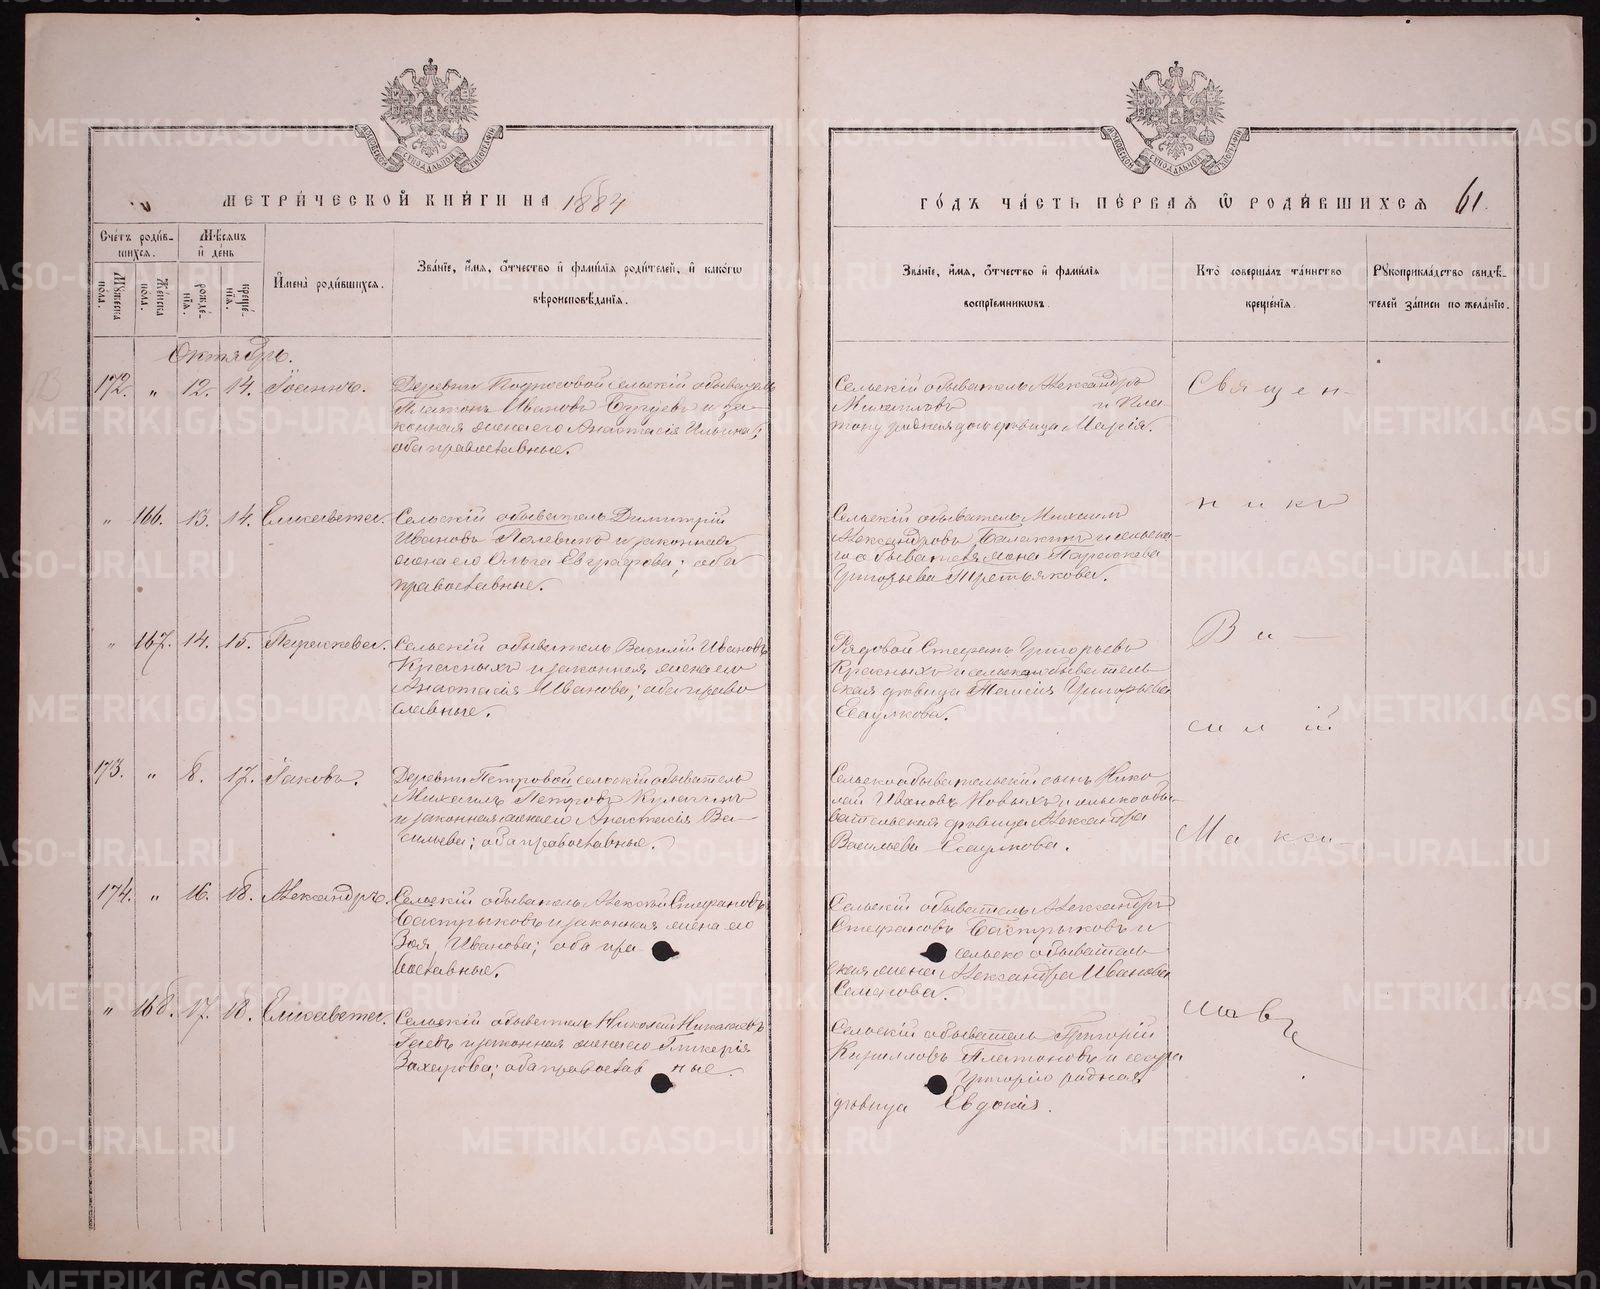 МЕТРИ́ЧЕСКОЙ КНИ́ГИ НА 1884
ГО́ДЪ ЧА́СТЬ ПЕ́РВАЯ Ѿ РОДИ́ВШИХСЯ 61.
Сче́тъ роди́в-
шихся.
Мꙋ́жеска по́ла.
Же́нска по́ла.
Мѣ́сяцъ
и҆ де́нь
рожде́-
нїя.
креще́-
нїя.
И҆мена̀ роди́вшихся.
Зва́нїе, и҆́мя, ѻ҆́тчество и҆ фами́лїя роди́телей, и҆ како́гѡ
вѣроисповѣ́данїя.
Зва́нїе, и҆́мя, ѻ҆́тчество и҆ фами́лїя
воспрїе́мникѡвъ.
Кто̀ соверша́лъ та́инство
креще́нїя.
Рꙋкоприкла́дство свидѣ́-
телей за́писи по жела́нїю.
Октябрь.
172. " 12. 14. Іоаннъ.
Деревни Подкосовой сельскій обыватель
Платонъ Ивановъ и за-
конная жена его Анастасія Ильина;
оба православные.
Сельскій обыватель Александръ
Михаиловъ и Пла-
тону родная дочь девица Марія.
" 166. 13. 14. Елисавета.
Сельскій обыватель Димитрій
Ивановъ Полевинъ и законная
жена его Ольга Евграфова; оба
православные.
Сельскій обыватель Михаилъ
Александровъ Балакинъ и сельска-
го обывателя жена Параскева
Григорьева Третьякова.
" 167. 14. 15. Параскева.
Сельскій обыватель Василій Ивановъ
Красныхъ и законная жена его
Анастасія Иванова; оба право
славные.
Рядовой Стефанъ Григорьевъ
Красныхъ и сельскообыватель-
ская девица Таисія Григорьева
Есаулкова.
173. " 8. 17. Іаковъ.
Деревни Петровой сельскій обыватель
Михаилъ Петровъ Кулагинъ
и законная жена его Анастасія Ва-
сильева; оба православные.
Сельскообывательскій сынъ Нико
лай Ивановъ Новыхъ и сельскообы-
вательская девица Александра
Васильева Есаулкова.
174. " 16. 18. Александръ.
Сельскій обыватель Алексей Стефановъ
Бастрыковъ и законная жена его
Зоя Иванова; оба пра
вославные.
Сельскій обыватель Александръ
Стефановъ Бастрыковъ и
сельско обыватель-
ская жена Александра Иванова
Семенова.
" 168. 17. 18. Елисавета.
Сельскій обыватель Николай Николаевъ
и законная жена его Гликерія
Захарова; оба православ ные.
Сельскій обыватель Григорій
Кирилловъ Платоновъ и сестра
Григорію родная
девица Евдокія.
Священ-
никъ
Ва-
силій
Макси-
мовъ
METRIKI.GASO-URAL.RU